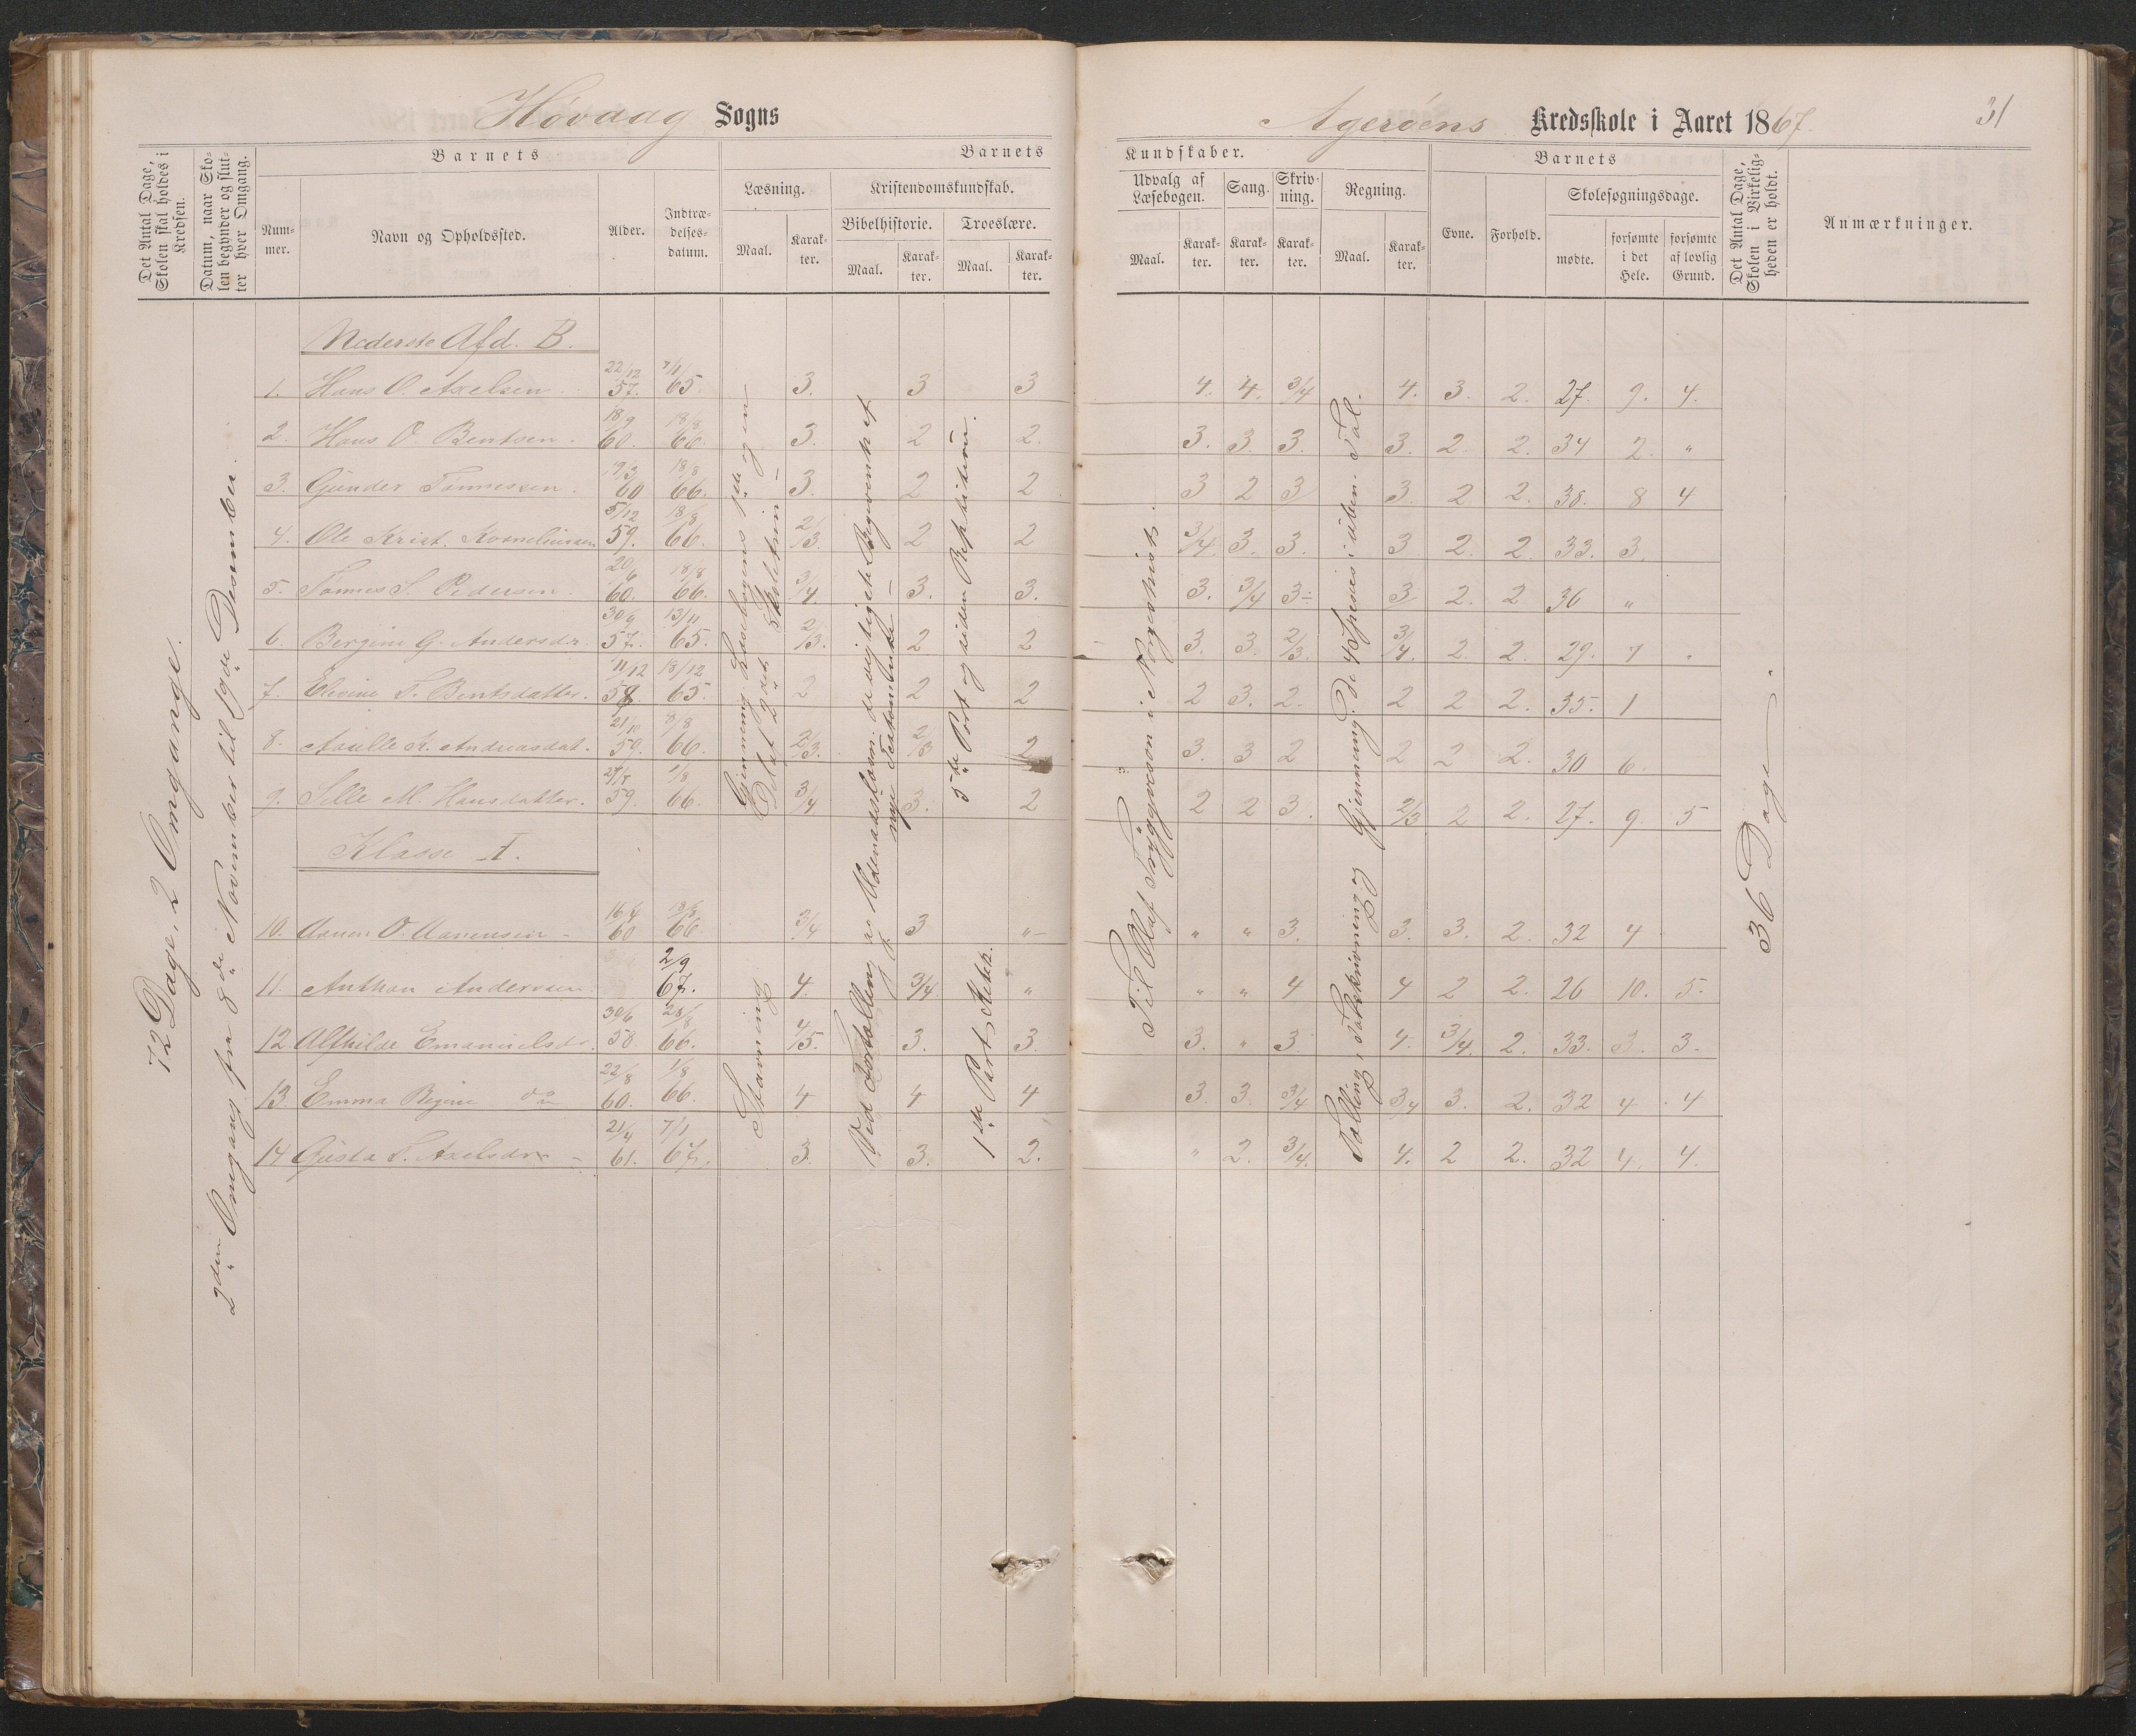 Høvaag Sogns
Agerøens Kredsskole i Aaret 1867. 31
Det Antal Dage, Skolen skal holdes i Kredsen.
Datum, naar Skolen begynder og slutter hver Omgang.
Barnets
Nummer.
Navn og Opholdssted.
Alder.
Indtrædelsesdatum.
Barnets
Læsning.
Maal.
Karakter.
Kristendomskundskab.
Bibelhistorie.
Maal.
Karakter.
Troeslære.
Maal.
Karakter.
Kundskaber.
Udvalg af Læsebogen.
Maal.
Karakter.
Sang.
Karakter.
Skrivning.
Karakter.
Regning.
Maal.
Karakter.
Barnets
Evne.
Forhold.
Skolesøgningsdage.
mødte.
forsømte i det Hele.
forsømte af lovlig Grund.
Det Antal Dage, Skolen i Virkeligheden er holdt.
Anmærkninger.
72 Dage, 2 Omgange.
2den Omgang fra 8de November til 19de Desember.
Nederste Afd. B.
1. Hans O. Axelsen 22/12 57. 7/1 65. 3. 3 3 4. 4. 3/4 4. 3. 2. 27. 9. 4.
2. Hans O. Bentsen. 18/9 60. 18/8 66. 3. 2 2. 3. 3. 3. 3. 2. 2. 34 2. "
3. Gunder Tønnessen. 19/3 60 18/8 66. 3. 2 2 3 2 3 3. 2 2. 38. 8 4
4. Ole Krist. Korneliussen 5/12 59. 18/8 66. 2/3. 2 2 3/4. 3. 3. 3 2. 2. 33. 3.
5. Tønnes S. Pedersen. 20/6 60. 18/8 66. 3/4. 3. 3. 3. 3/4 3÷ 3/ 2. 2 36 "
6. Bergine G. Andersdr. 30/9 57. 13/11 65. 2/3. 2 2 3. 3. 2/3. 3/4. 2. 2. 29. 7 "
7. Elevine T. Bentsdatter. 11/12 58. 18/12 65. 2 2 2 2 3. 2. 2 2 2. 35. 1
8. K. Andreasdat. 21/10 59. 66. 2/3. 2/3 2 3. 3 2 2 2 2. 30 6.
9. Sille M. Hansdatter. 59. 1/8 66. 3/4. 3. 2 2 2 3. 2/3 2 2. 27. 9. 5
Klasse I.
10. Aanen O. Aanensen 16/4 60 18/8 66. 3/4 3 " " " 3. 3. 3. 2. 32 4
11. Anthon Andersen 2/9 67. 4. 3/4. " " " 4 4 2 2. 26 10. 5.
12. Alfhilde Emanuelsdr. 30/6 58 66. 4/5. 3. 3. 3. " 3 4. 3/4. 2. 33. 3. 3.
13. Emma Regine do 22/8 60. 1/8 66. 4 4 4 3. 3. 3/4 3/4 3. 2. 32 4 4
14 Gusta T. Axelsdr 21/4 61. 7/1 67. 3. 3. 2. " 2. 3/4. 4. 2 2. 32 4. 4.
Stavning
5te Part og siden Repitition.
1ste Part
Til Olaf Tryggvesøn i Norgeshist.
36 Dage